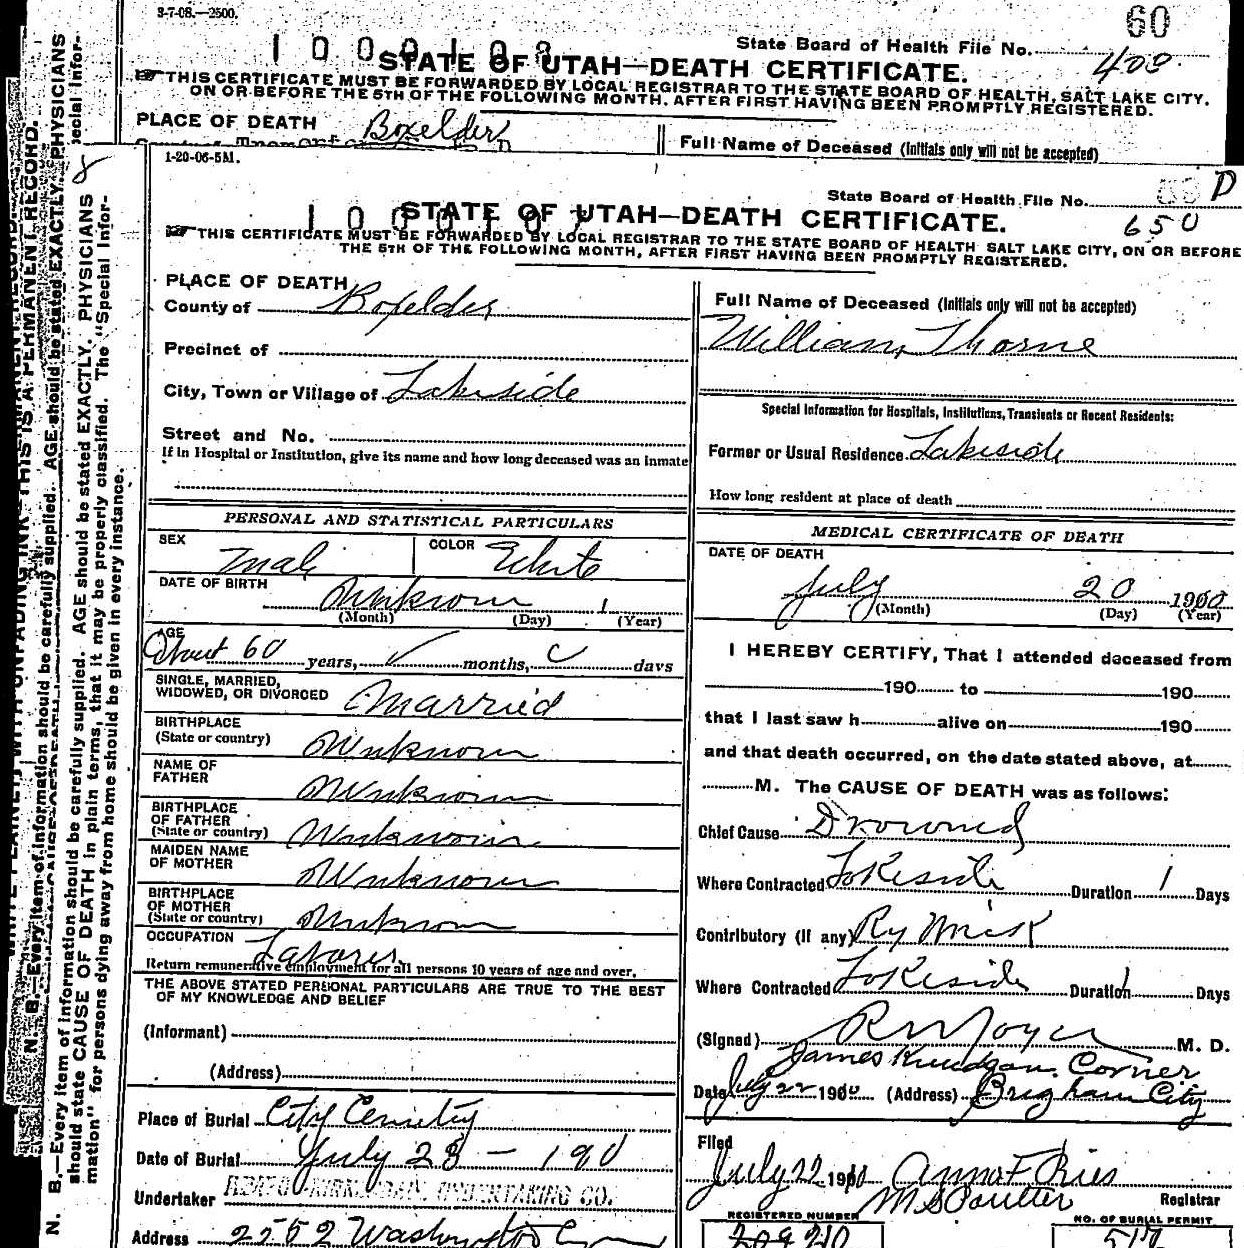 3-7-08.—2500.
60
State Board of Health File No.
409
STATE OF UTAH—DEATH CERTIFICATE.
THIS CERTIFICATE MUST BE FORWARDED BY LOCAL REGISTRAR TO THE STATE BOARD OF HEALTH, SALT LAKE CITY,
ON OR BEFORE THE 5TH OF THE FOLLOWING MONTH, AFTER FIRST HAVING BEEN PROMPTLY REGISTERED.
PLACE OF DEATH
Boxelder
Full Name of Deceased (Initials only will not be accepted)
1-20-06-5M.
State Board of Health File No.
D
650
STATE OF UTAH—DEATH CERTIFICATE.
THIS CERTIFICATE MUST BE FORWARDED BY LOCAL REGISTRAR TO THE STATE BOARD OF HEALTH SALT LAKE CITY, ON OR BEFORE
THE 5TH OF THE FOLLOWING MONTH, AFTER FIRST HAVING BEEN PROMPTLY REGISTERED.
PLACE OF DEATH
County of Boxelder
Precinct of
City, Town or Village of Lakeside
Street and No.
If in Hospital or Institution, give its name and how long deceased was an inmate
Full Name of Deceased (Initials only will not be accepted)
William Thorne
Special Information for Hospitals, Institutions, Transients or Recent Residents:
Former or Usual Residence Lakeside
How long resident at place of death
PERSONAL AND STATISTICAL PARTICULARS
SEX Male COLOR White
DATE OF BIRTH Unknown 1
(Month) (Day) (Year)
AGE About 60 years, months, days
SINGLE, MARRIED,
WIDOWED, OR DIVORCED Married
BIRTHPLACE
(State or country) Unknown
NAME OF
FATHER Unknown
BIRTHPLACE
OF FATHER
(State or country) Unknown
MAIDEN NAME
OF MOTHER Unknown
BIRTHPLACE
OF MOTHER
(State or country) Unknown
OCCUPATION Laborer
Return remunerative employment for all persons 10 years of age and over.
THE ABOVE STATED PERSONAL PARTICULARS ARE TRUE TO THE BEST
OF MY KNOWLEDGE AND BELIEF
(Informant)
(Address)
Place of Burial City Cemetry
Date of Burial July 23 - 190
Undertaker UNDERTAKING CO.
Address 2552 Washington
MEDICAL CERTIFICATE OF DEATH
DATE OF DEATH
July 20 1900
(Month) (Day) (Year)
I HEREBY CERTIFY, That I attended deceased from
190 to 190
that I last saw h alive on 190
and that death occurred, on the date stated above, at
M. The CAUSE OF DEATH was as follows:
Chief Cause Drowned
Where Contracted Lakeside Duration 1 Days
Contributory (if any)
Where Contracted Lakeside Duration 1 Days
(Signed) M. D.
James Knudson, Corner
Date July 22 190 (Address) Brigham City
Filed
July 22 1900 Anna F Ries
M S Poulter Registrar
REGISTERED NUMBER
NO. OF BURIAL PERMIT
N. B.—Every item of information should be carefully supplied. AGE should be stated EXACTLY. PHYSICIANS
should state CAUSE OF DEATH in plain terms, that it may be properly classified. The "Special Infor-
mation" for persons dying away from home should be given in every instance.